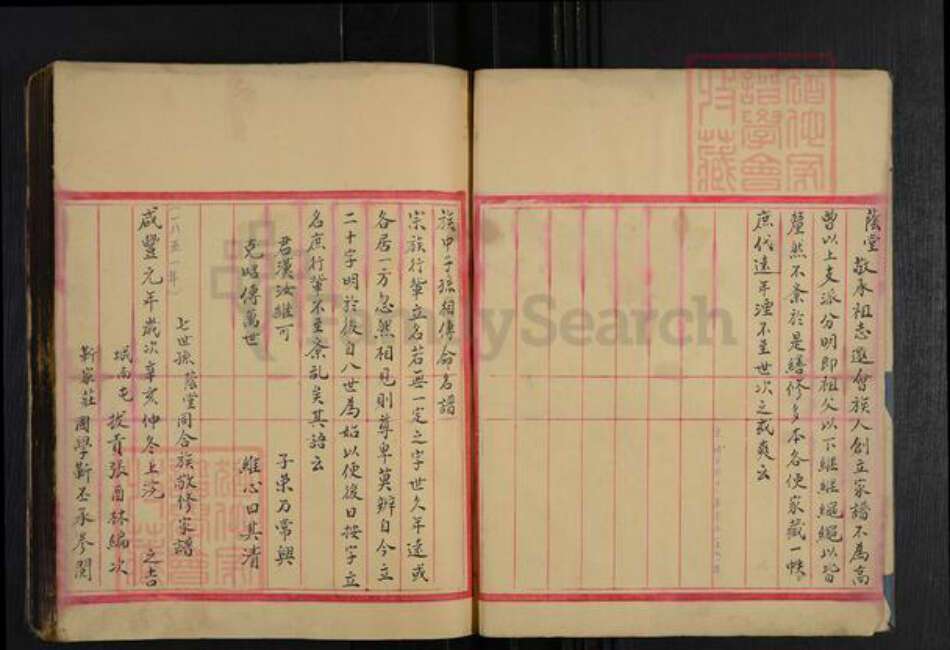 蔭堂敬承祖志邀會族人創立家譜不為高
曾以上支派分明即祖父以下繼繼繩繩以皆
釐然不紊於是繕修多本各使家藏一帙
庶代遠年湮不至世次之或爽云
族中子孫相傳命名譜
宗族行輩立名若無一定之字世久年遠或
各居一方忽然相見則尊卑莫辨自今立
二十字明於後自八世為始以便後日按字立
名庶行輩不至紊亂矣其語云
君漢汝維可 子榮乃常興
克昭傳萬世 維心曰其清
七世孫蔭堂同合族敬修家譜
(一八五一年)
咸豐元年歲次辛亥仲冬上浣 之吉
垊南屯 拔貢張酉林編次
靳家莊 國學靳丕承參閱
FamilySearch